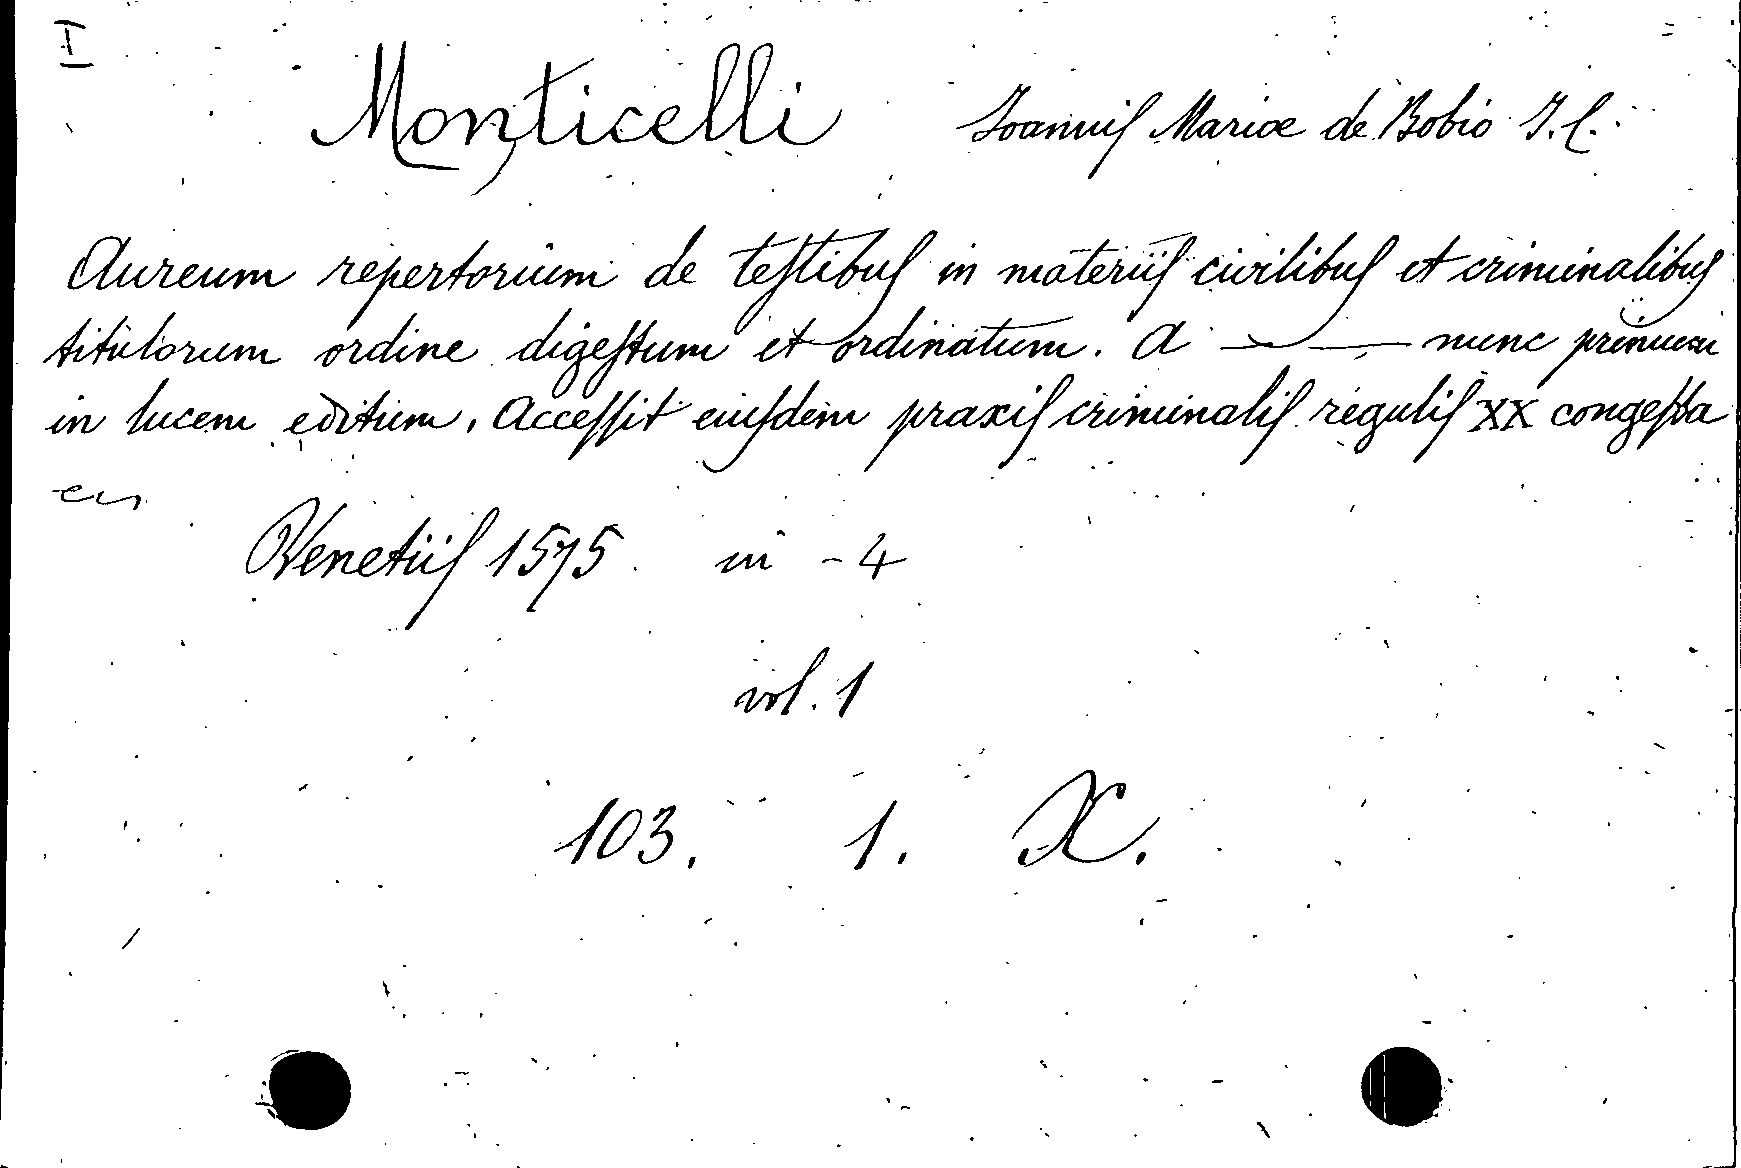 I
Monticelli Joannis Mariae de Bobio J. C.
Aureum repertorium de testibus in materiis civilibus et criminalibus
titulorum ordine digestum et ordinatum. A —— nunc primum
in lucem editum. Accessit eiusdem praxis criminalis regulis XX congesta
Venetiis 1575 in - 4
vol. 1
103. 1. X.